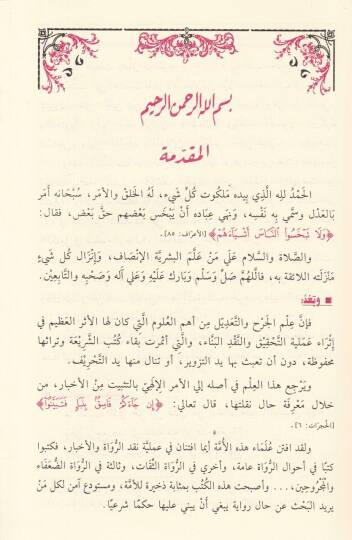 بسم الله الرحمن الرحيم
المقدمة
الحَمْدُ لله الَّذِي بِيده مَلكوت كُلِّ شَيء، لَهُ الخَلقُ والأمَر، سُبْحَانَه أَمَر
بَالعَدْل وسمَّي بِه نَفْسِه، وَنهَي عِبَاده أَنْ يَبْخَس بَعْضهم حقَّ بَعْض، فقال:
﴿وَلَا تَبْخَسُوا النَّاسَ أَشْيَاءَهُمْ﴾ [الأعرَاف: ٨٥].
والصَّلاة والسَّلام عَلَي مَنْ عَلَّمَ البشريَّة الإنْصَاف، وَإنْزَال كُلَّ شَيءٍ
مَنْزِلَتَه اللائقة به، فاللَّهُمَّ صَلِّ وَسَلِّم وَبَارك عَلَيْهِ وَعَلَي آله وَصَحْبِه والتَّابِعِين.
■ وبَعْدُ:
فإنَّ عِلْم الجَرْح والتَّعْدِيل مِن أهم العُلوم الَّتي كان لَها الأثر العَظيم في
إثْرَاء عَمَلية التَّحْقِيق والنَّقْدِ البنَّاء، والَّتِي أثمرت بقَاء كُتُب الشَّرِيْعَة وتراثها
محفوظة، دون أن تعبث بها يد التزوير، أو تنال منها يد التَّحْرِيْف.
ويَرْجِع هذا العِلْم في أصله إلي الأمر الإلَهِيِّ بالتثبيت مِنْ الأخبار، من
خلال مَعْرِفَة حال نقلتها، قال تعالي: ﴿إِن جَاءَكُمْ فَاسِقٌ بِنَبَإٍ فَتَبَيَّنُوا﴾
[الحُجرَات: ٦].
ولقد افتن عُلَمَاء هذه الأُمَّة أيما افتنان في عمليَّة نقد الرُّوَاة والأخبار، فكتبوا
كتبًا في أحوال الرُّوَاة عامة، وأخري في الرُّوَاة الثِّقَات، وثالثة في الرُّوَاة الضُّعَفَاء
والمجْرُوحِين،... وأصبحت هذه الكُتُب بمثابة ذخيرة للأمَّة، ومستودع آمن لكل مَنْ
يريد البَحْث عن حال رواية يبغي أَنْ يبني عليها حكمًا شرعيًا.